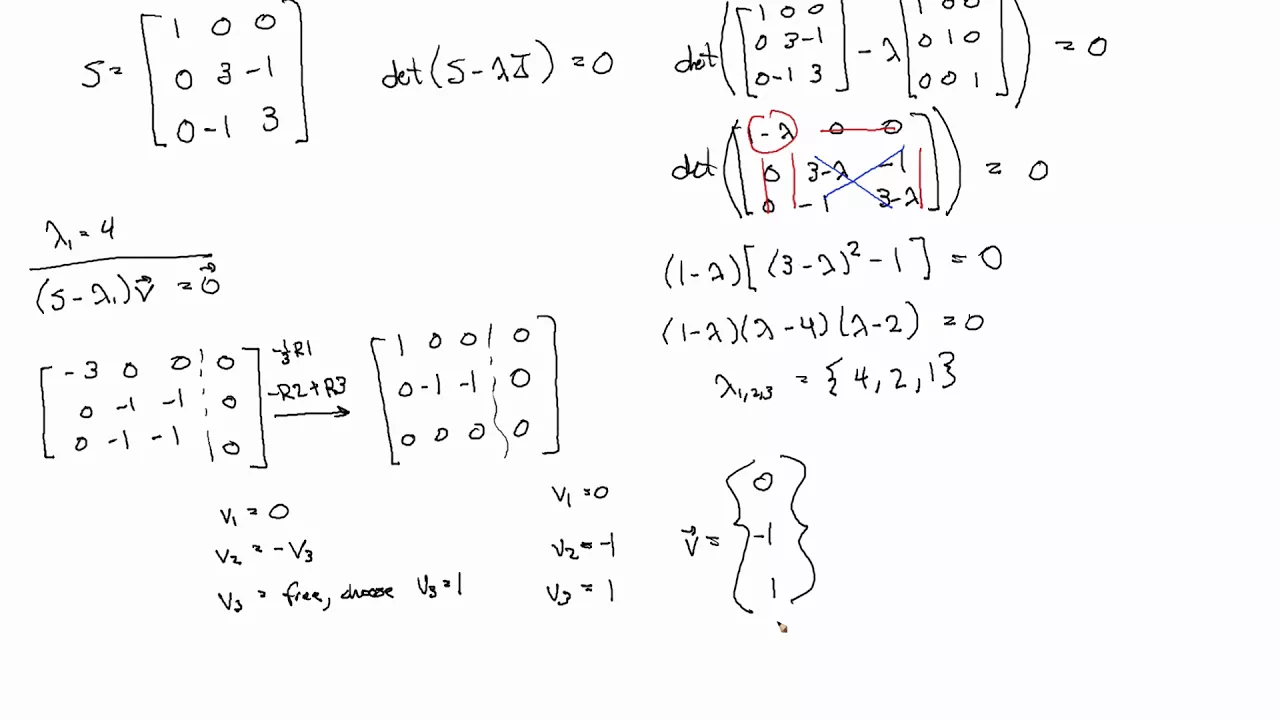 S = [ 1 0 0
0 3 -1
0 -1 3 ]
det(S - λI) = 0
det([ 1 0 0
0 3 -1
0 -1 3 ] - λ [ 1 0 0
0 1 0
0 0 1 ]) = 0
det([ 1-λ 0 0
0 3-λ -1
0 -1 3-λ ]) = 0
(1-λ)[(3-λ)² - 1] = 0
(1-λ)(λ-4)(λ-2) = 0
λ1,2,3 = {4, 2, 1}
λ₁ = 4
(S - λ₁)v⃗ = 0⃗
[ -3 0 0 | 0
0 -1 -1 | 0
0 -1 -1 | 0 ]
-1/3 R1
-R2+R3
[ 1 0 0 | 0
0 -1 -1 | 0
0 0 0 | 0 ]
v₁ = 0
v₂ = -v₃
v₃ = free, choose v₃=1
v₁ = 0
v₂ = -1
v₃ = 1
v⃗ = { 0
-1
1 }